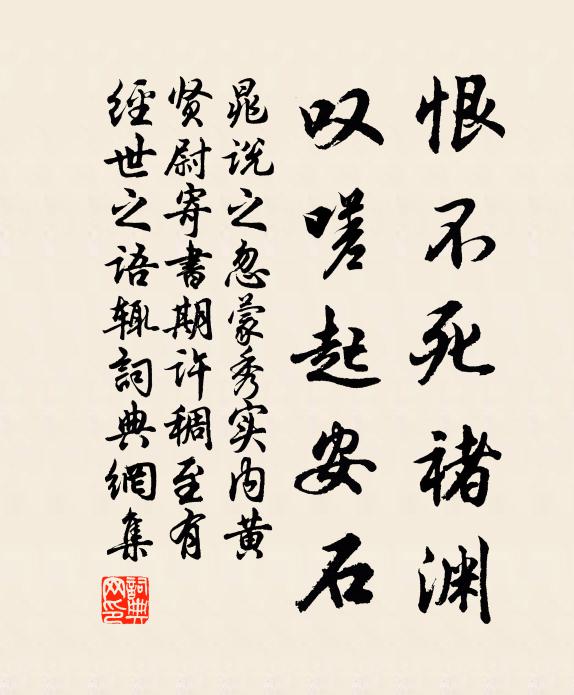 恨不死褚渊
叹嗟起安石
晁说之忽蒙秀实内黄
贤尉寄書期许稠至有
經世之语辄詞典網集
詞典网印